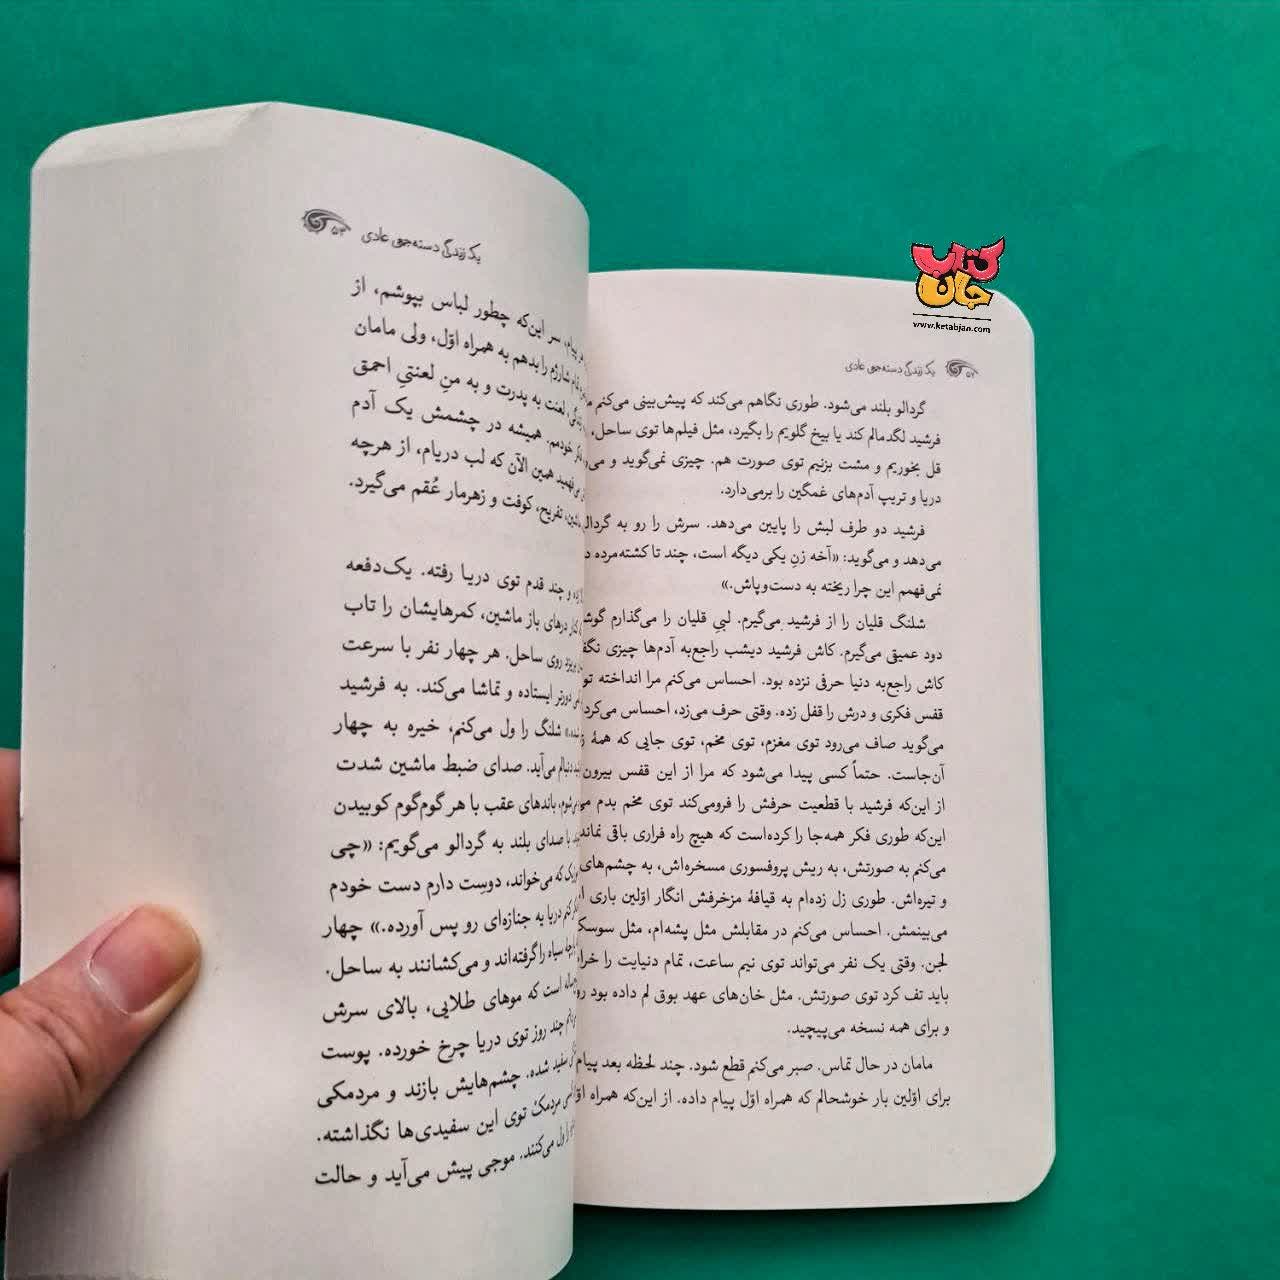 کتاب
جان
www.ketabjan.com
۵۲ یک زندگی دسته‌جمعی عادی
گردالو بلند می‌شود. طوری نگاهم می‌کند که پیش‌بینی می‌کنم
فرشید لگدمالم کند یا بیخ گلویم را بگیرد، مثل فیلم‌ها توی ساحل،
قل بخوریم و مشت بزنیم توی صورت هم. چیزی نمی‌گوید و
دریا و تریپ آدم‌های غمگین را برمی‌دارد.
فرشید دو طرف لبش را پایین می‌دهد. سرش را رو به
می‌دهد و می‌گوید: «آخه زنِ یکی دیگه است، چند تا کشته‌مرده
نمی‌فهمم این چرا ریخته به دست‌وپاش.»
شلنگ قلیان را از فرشید می‌گیرم. لبیِ قلیان را می‌گذارم
دود عمیق می‌گیرم. کاش فرشید دیشب راجع‌به آدم‌ها چیزی
کاش راجع‌به دنیا حرفی نزده بود. احساس می‌کنم مرا انداخته
قفس فکری و درش را قفل زده. وقتی حرف می‌زد، احساس
می‌گوید صاف می‌رود توی مغزم، توی مخم، توی جایی که همهٔ
آن‌جاست. حتماً کسی پیدا می‌شود که مرا از این قفس بیرون
از این‌که فرشید با قطعیت حرفش را فرومی‌کند توی مخم بدم
این‌که طوری فکر همه‌جا را کرده‌است که هیچ راه فراری باقی
می‌کنم به صورتش، به ریش پروفسوری مسخره‌اش، به چشم‌های
و تیره‌اش. طوری زل زده‌ام به قیافهٔ مزخرفش انگار اوّلین باری
می‌بینمش. احساس می‌کنم در مقابلش مثل پشه‌ام، مثل
لجن. وقتی یک نفر می‌تواند توی نیم ساعت، تمام دنیایت را
باید تف کرد توی صورتش. مثل خان‌های عهد بوق لم داده بود
و برای همه نسخه می‌پیچید.
مامان در حال تماس. صبر می‌کنم قطع شود. چند لحظه بعد پیام
برای اوّلین بار خوشحالم که همراه اوّل پیام داده. از این‌که همراه
یک زندگی دسته‌جمعی عادی ۵۳
پیام، سر این‌که چطور لباس بپوشم، از
شارژم را بدهم به همراه اوّل، ولی مامان
لعنت به پدرت و به منِ لعنتیِ احمق
خودمم. همیشه در چشمش یک آدم
همین الآن که لب دریام، از هرچه
تفریح، کوفت و زهرمار عُقم می‌گیرد.
و چند قدم توی دریا رفته. یک‌دفعه
درهای باز ماشین، کمرهایشان را تاب
روی ساحل. هر چهار نفر با سرعت
دورتر ایستاده و تماشا می‌کند. به فرشید
شلنگ را ول می‌کنم، خیره به چهار
دنبالم می‌آید. صدای ضبط ماشین شدت
باندهای عقب با هر گوم‌گوم کوبیدن
با صدای بلند به گردالو می‌گویم: «چی
که می‌خواند، دوسِت دارم دست خودم
دریا یه جنازه‌ای رو پس آورده.» چهار
سیاه را گرفته‌اند و می‌کشانند به ساحل.
است که موهای طلایی، بالای سرش
چند روز توی دریا چرخ خورده. پوست
سفید شده. چشم‌هایش بازند و مردمکی
مردمک توی این سفیدی‌ها نگذاشته.
ول می‌کنند. موجی پیش می‌آید و حالت